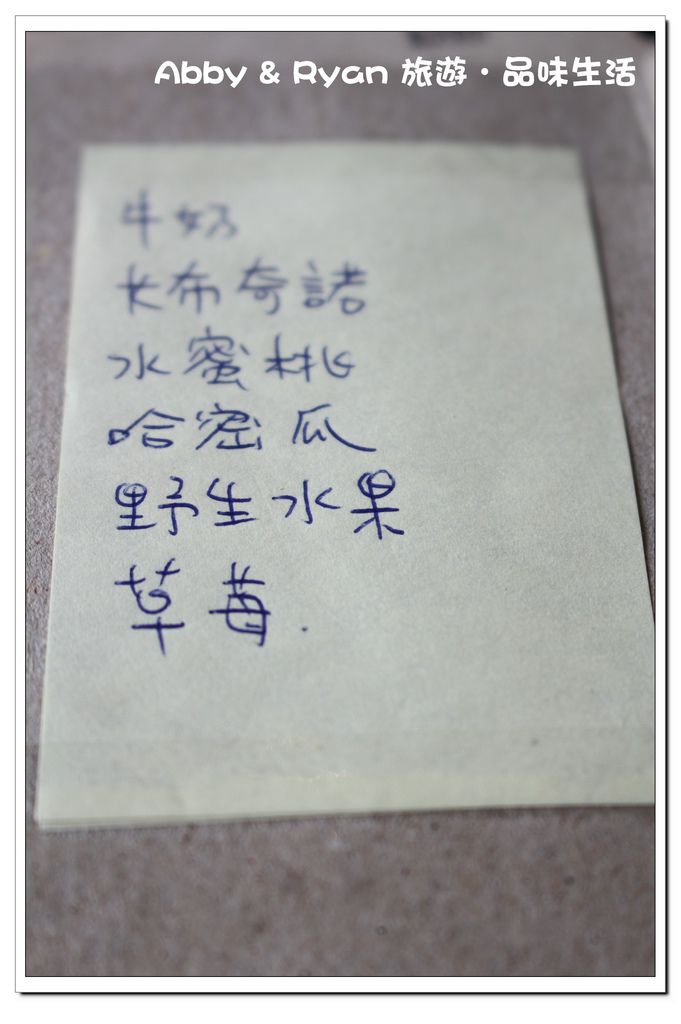 Abby & Ryan 旅遊・品味生活
牛奶
卡布奇諾
水蜜桃
哈密瓜
野生水果
草莓.